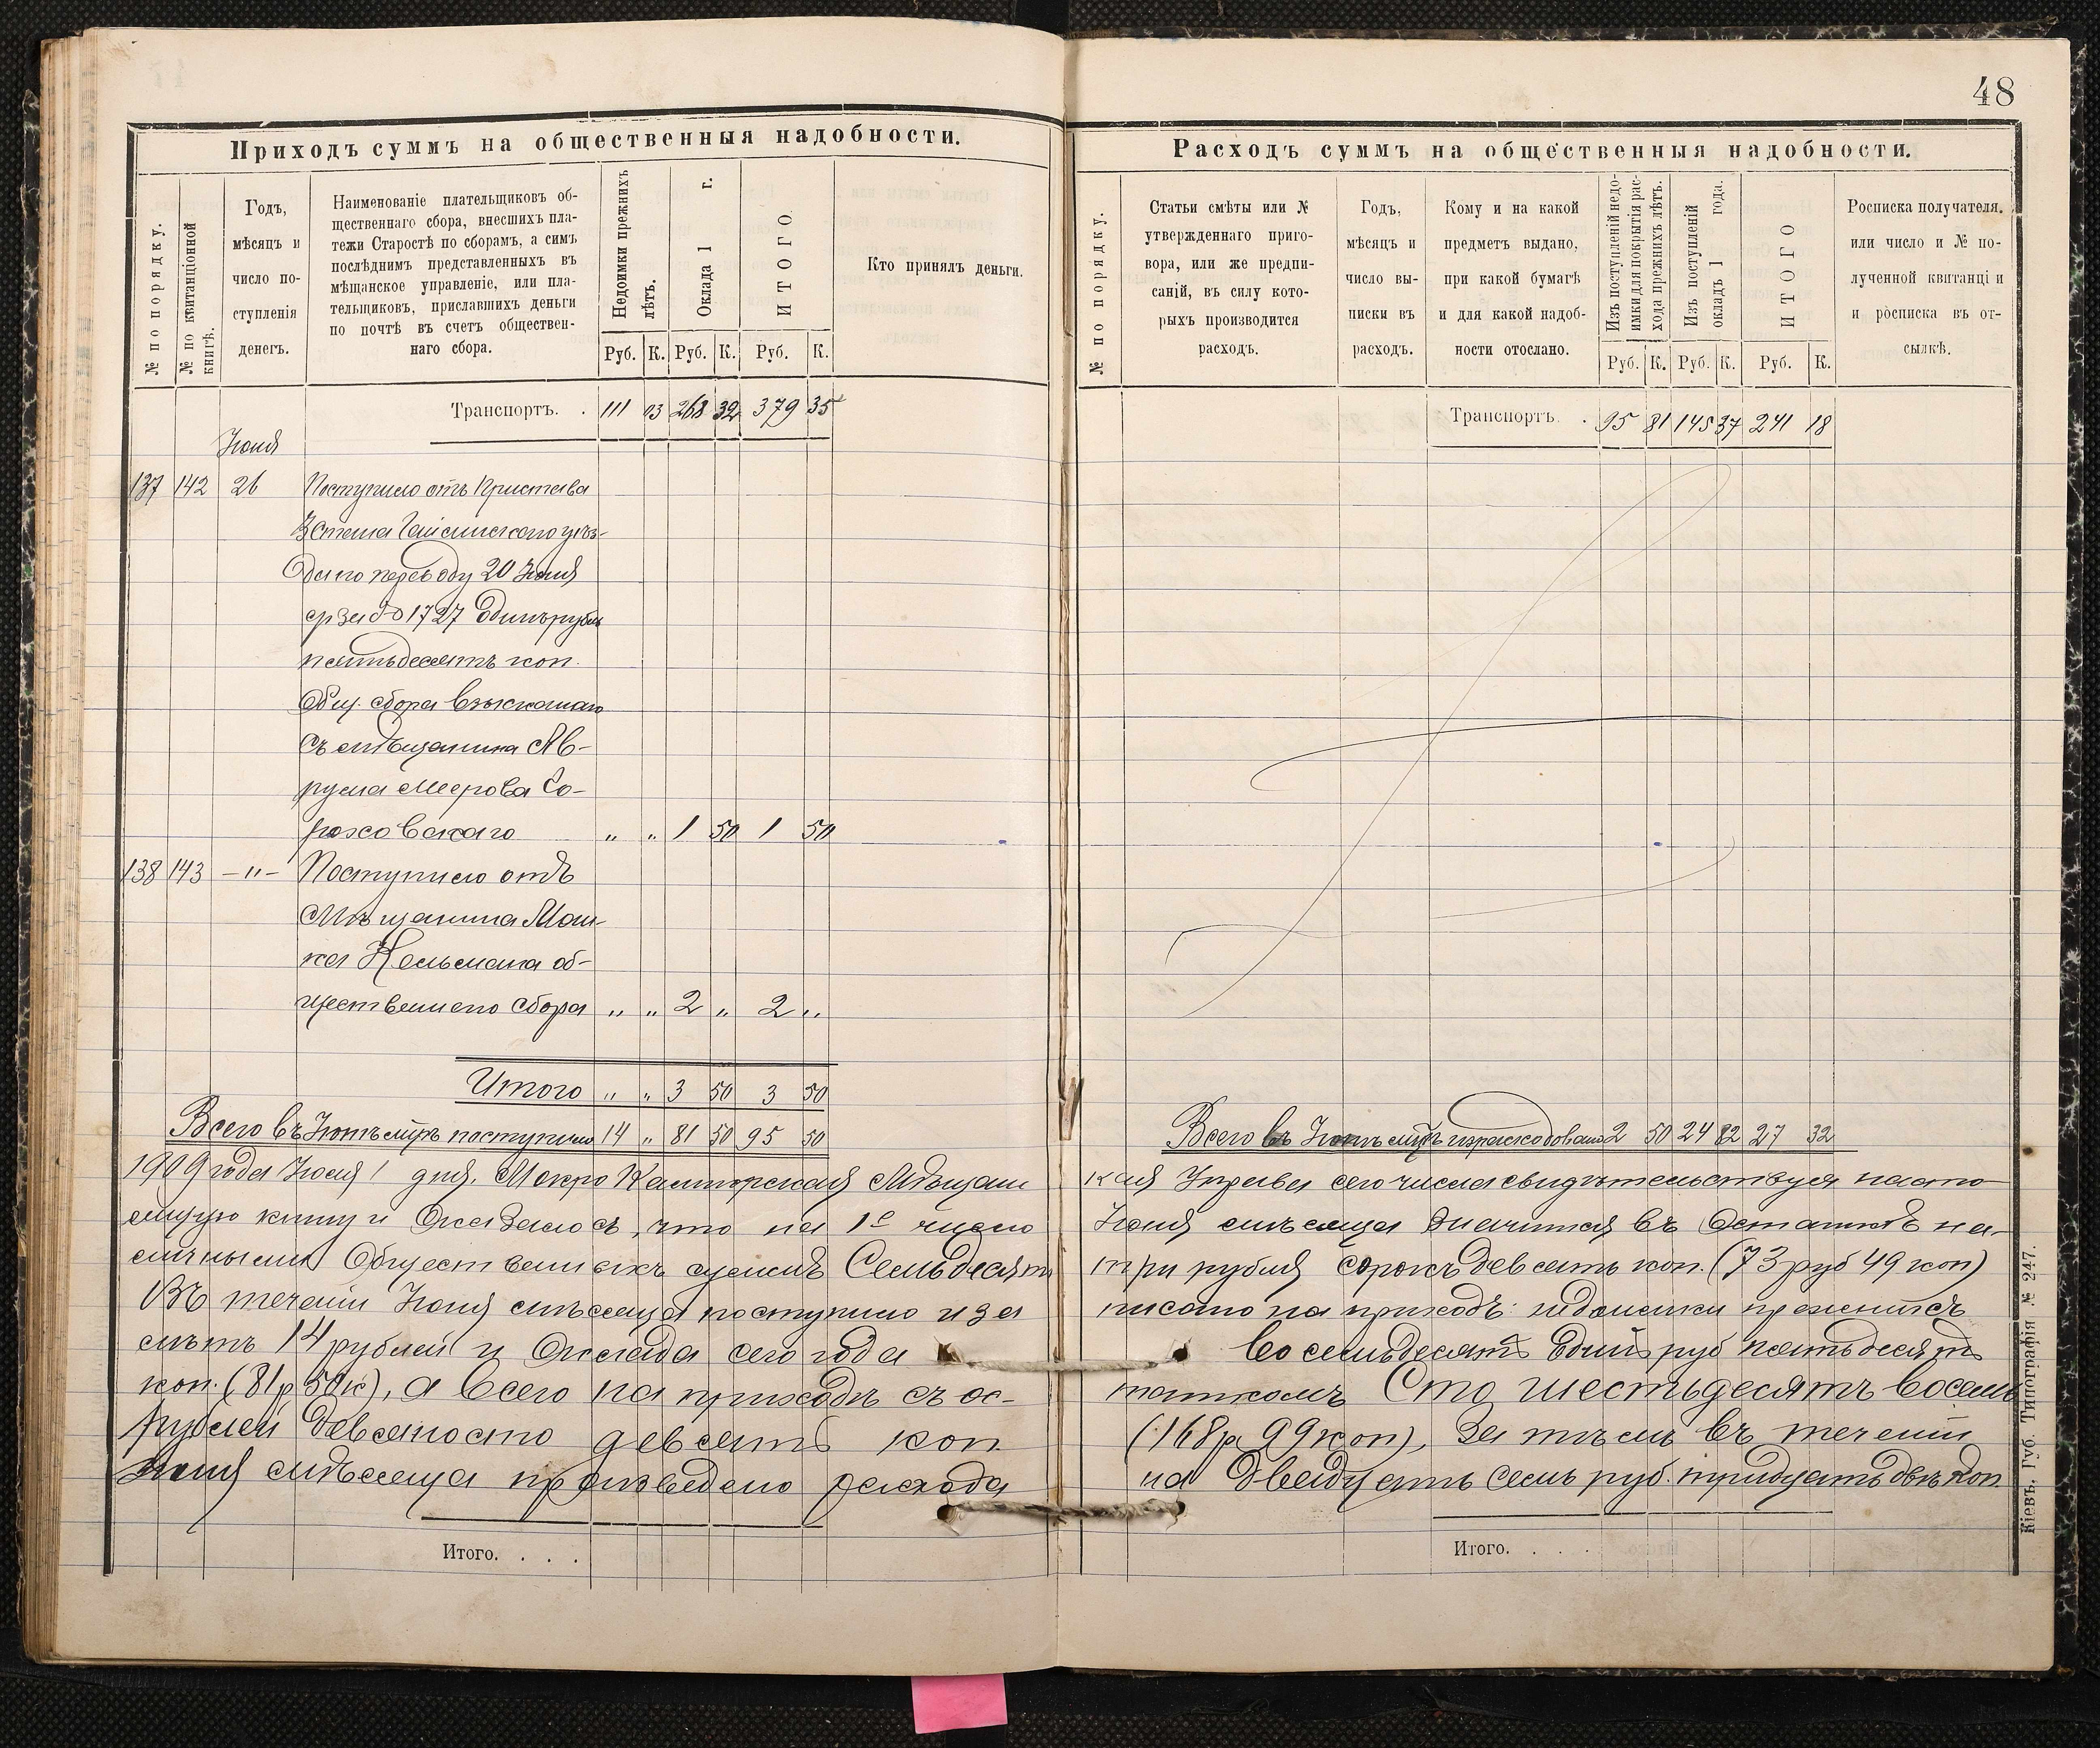 48
Приходъ суммъ на общественныя надобности.
№ по порядку.
№ по квитанціонной книгѣ.
Годъ,
мѣсяцъ и
число по-
ступленія
денегъ.
Наименованіе плательщиковъ об-
щественнаго сбора, внесшихъ пла-
тежи Старостѣ по сборамъ, а симъ
послѣднимъ представленныхъ въ
мѣщанское управленіе, или пла-
тельщиковъ, приславшихъ деньги
по почтѣ въ счетъ обществен-
наго сбора.
Недоимки прежнихъ
лѣтъ.
Оклада 1 г.
ИТОГО.
Кто принялъ деньги.
Руб. К. Руб. К. Руб. К.
Транспортъ. . 111 03 268 32 379 35
Іюня
137 142 26 Поступило отъ Пристава
3 Стана Гайсинскаго уѣз-
да по переводу 20 Іюня
за № 1727 Одинъ рубль
пятьдесятъ коп.
Общ. сбора взысканаго
съ мѣщанина Ав-
рума Меерова Со-
роховскаго „ „ 1 50 1 50
138 143 —"— Поступило отъ
Мѣщанина Мош-
ка Кельмана об-
щественаго сбора „ „ 2 „ 2 „
Итого „ „ 3 50 3 50
Всего въ Іюнѣ мцѣ поступило 14 „ 81 50 95 50
1909 года Іюля 1 дня. Мокро Калигорская Мѣщанс
ящую книгу и Оказалось, что на 1е число
личными Общественныхъ суммъ Семьдесятъ
Въ теченіи Іюня мѣсяца поступило и за
лѣтъ 14 рублей и Оклада сего года
коп. (81 р 50 к), а всего на приходѣ съ ос-
рублей девяносто девять коп
Іюня мѣсяца произведено расхода
Итого. . . .
Расходъ суммъ на общественныя надобности.
№ по порядку.
Статьи смѣты или №
утвержденнаго приго-
вора, или же предпи-
саній, въ силу кото-
рыхъ производится
расходъ.
Годъ,
мѣсяцъ и
число вы-
писки въ
расходъ.
Кому и на какой
предметъ выдано,
при какой бумагѣ
и для какой надоб-
ности отослано.
Изъ поступленій недо-
имки для покрытія рас-
хода прежнихъ лѣтъ.
Изъ поступленій
окладъ 1 года.
ИТОГО
Росписка получателя,
или число и № по-
лученной квитанціи
и росписка въ от-
сылкѣ.
Руб. К. Руб. К. Руб. К.
Транспортъ . 95 81 145 37 241 18
Всего въ Іюнѣ мцѣ израсходовано 2 50 24 82 27 32
кая Управа сего числа свидѣтельствуя насто-
Іюня мѣсяца значится въ Остаткѣ на-
три рубля сорокъ девять коп. (73 руб 49 коп)
писано на приходъ: недоимки прежнихъ
восемьдесятъ Одинъ руб пятьдесятъ
таткомъ Сто шестьдесятъ восемь
(168 р. 99 коп), За тѣмъ въ теченіи
на Двадцать семь руб. тридцать двѣ коп.
Итого. . . .
Кіевъ. Губ. Типографія № 247.